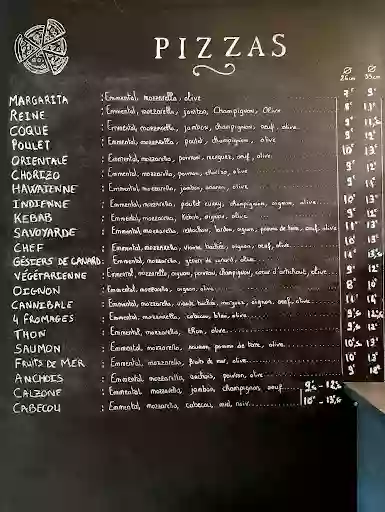 PIZZAS
Ø Ø
26cm 33cm
MARGARITA : Emmental, mozzarella, olive 7€ 9€
REINE : Emmental, mozzarella, jambon, Champignon, Olive 8€
COQUE : Emmental, mozzarella, jambon, champignon, oeuf, olive 9€
POULET : Emmental, mozzarella, poulet, champignon, olive 9€ 12€
ORIENTALE : Emmental, mozzarella, poivron, merguez, oeuf, olive 10€ 13€
CHORIZO : Emmental, mozzarella, poivron, chorizo, olive 9€ 12€
HAWAÏENNE : Emmental, mozzarella, jambon, ananas, olive 9€
INDIENNE : Emmental, mozzarella, poulet curry, champignon, oignon, olive 10€ 13€
KEBAB : Emmental, mozzarella, Kebab, oignon, olive 9€ 12€
SAVOYARDE : Emmental, mozzarella, reblochon, lardon, oignon, pomme de terre, oeuf, olive 11€ 13€
CHEF : Emmental, mozzarella, viande hachée, oignon, oeuf, olive 10€ 13€
GÉSIERS DE CANARD : Emmental, mozzarella, gésiers de canard, olive
VÉGÉTARIENNE : Emmental, mozzarella, oignon, poivron, champignon, coeur d'artichaut, olive 9€ 12€
OIGNON : Emmental, mozzarella, oignon, olive 8€ 10€
CANNIBALE : Emmental, mozzarella, viande hachée, merguez, oignon, oeuf, olive 11€
4 FROMAGES : Emmental, mozzarella, cabécou, bleu, olive 9€5 12€5
THON : Emmental, mozzarella, thon, olive 9€ 12€
SAUMON : Emmental, mozzarella, saumon, pomme de terre, olive 10€5 13€
FRUITS DE MER : Emmental, mozzarella, fruits de mer, olive 10€ 13€
ANCHOIS : Emmental, mozzarella, anchois, poivron, olive 9€
CALZONE : Emmental, mozzarella, jambon, champignon, oeuf 9€5 - 12€5
CABECOU : Emmental, mozzarella, cabecou, miel, noix 10€ - 13€5